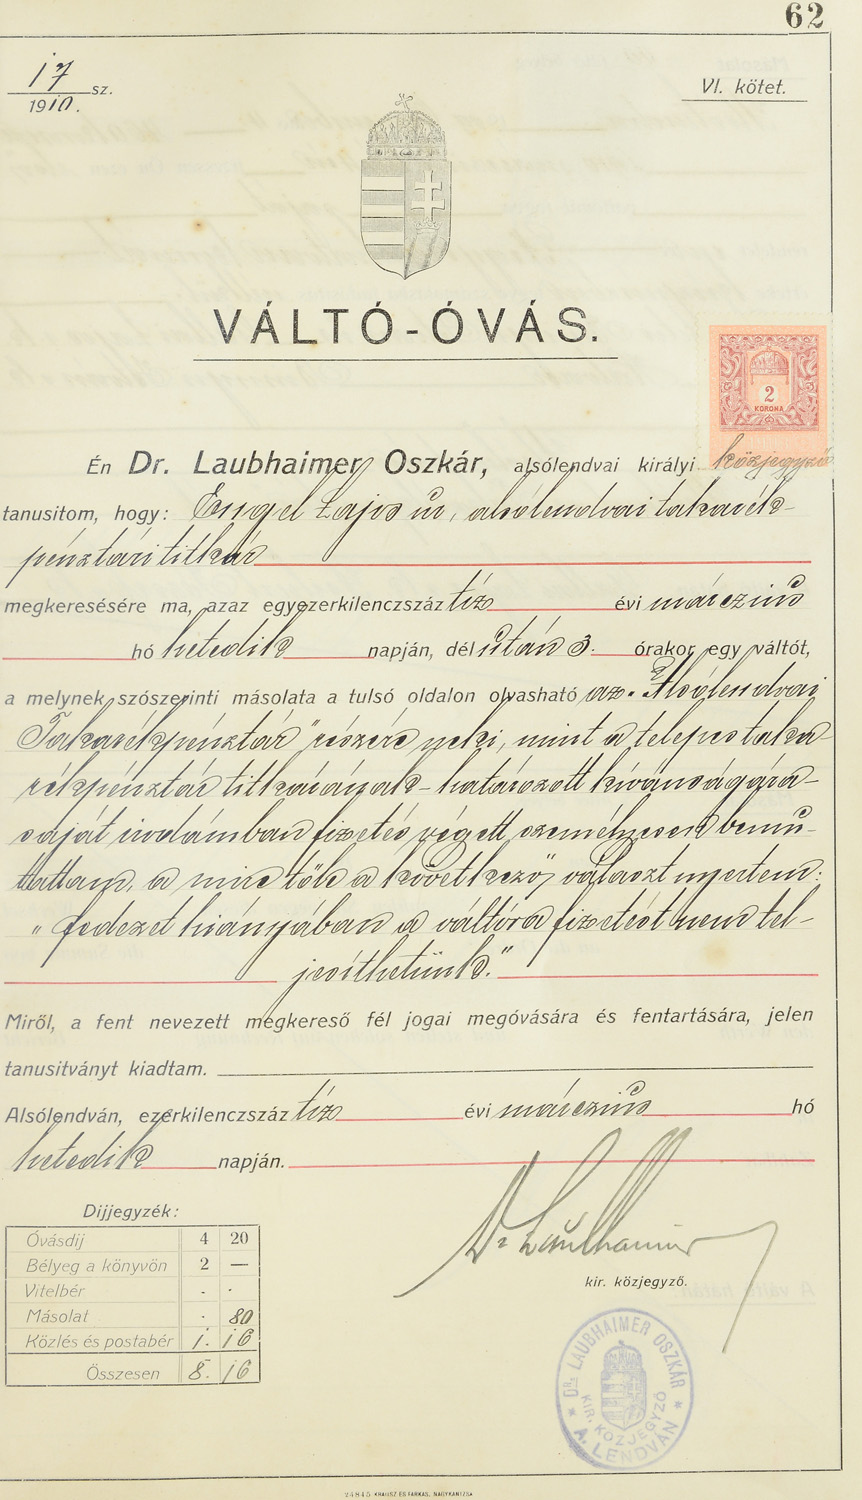 62
17 sz.
1910.
VI. kötet.
VÁLTÓ-ÓVÁS.
2
KORONA
Én Dr. Laubhaimer Oszkár, alsólendvai királyi közjegyző
tanusitom, hogy: Engel Lajos úr, alsólendvai takarék-
pénztári titkár
megkeresésére ma, azaz egyezerkilenczszáz tíz évi márczius
hó hetedik napján, dél után 3. órakor egy váltót,
a melynek szószerinti másolata a tulsó oldalon olvasható az „Alsólendvai
Takarékpénztár" részére neki, mint a telepes taka-
rékpénztár titkárának - határozott kívánságára -
saját irodámban fizetés végett személyesen bemu-
tattam, a mire tőle a következő választ nyertem:
„fedezet hiányában a váltóra fizetést nem tel-
jesíthetünk."
Miről, a fent nevezett megkereső fél jogai megóvására és fentartására, jelen
tanusitványt kiadtam.
Alsólendván, ezerkilenczszáz tíz évi márczius hó
hetedik napján.
Dr Laubhaimer
kir. közjegyző.
Dijjegyzék:
Óvásdij 4 20
Bélyeg a könyvön 2 —
Vitelbér . .
Másolat . 80
Közlés és postabér 1. 16
Összesen 8. 16
DR. LAUBHAIMER OSZKÁR
KIR. KÖZJEGYZŐ
* A. LENDVÁN *
24845 KRAUSZ ÉS FARKAS, NAGYKANIZSA